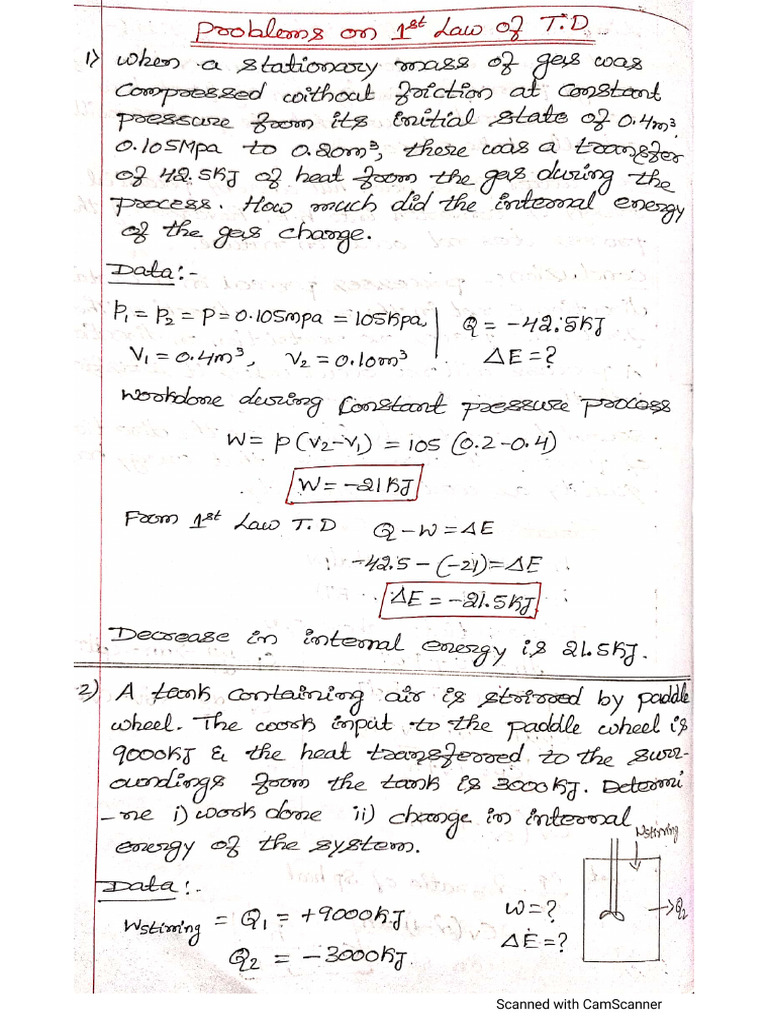 Problems on 1st Law of T.D
1) When a stationary mass of gas was
Compressed without friction at constant
pressure from its initial state of 0.4m³,
0.105Mpa to 0.20m³, there was a transfer
of 42.5KJ of heat from the gas during the
process. How much did the internal energy
of the gas change.
Data:-
P₁ = P₂ = P = 0.105mpa = 105Kpa,
V₁ = 0.4m³, V₂ = 0.10m³
Q = -42.5KJ
ΔE = ?
Workdone during Constant pressure process
W = P(V₂-V₁) = 105 (0.2-0.4)
W = -21KJ
From 1st Law T.D Q-W = ΔE
-42.5-(-21) = ΔE
ΔE = -21.5KJ
Decrease in internal energy is 21.5KJ.
2) A tank containing air is stirred by paddle
wheel. The work input to the paddle wheel is
9000KJ & the heat transferred to the surr-
oundings from the tank is 3000KJ. Determi
-ne i) work done ii) change in internal
energy of the system.
Wstirring
Data:-
Wstirring = Q₁ = +9000KJ
Q₂ = -3000KJ.
W = ?
ΔE = ?
Q₂
Scanned with CamScanner